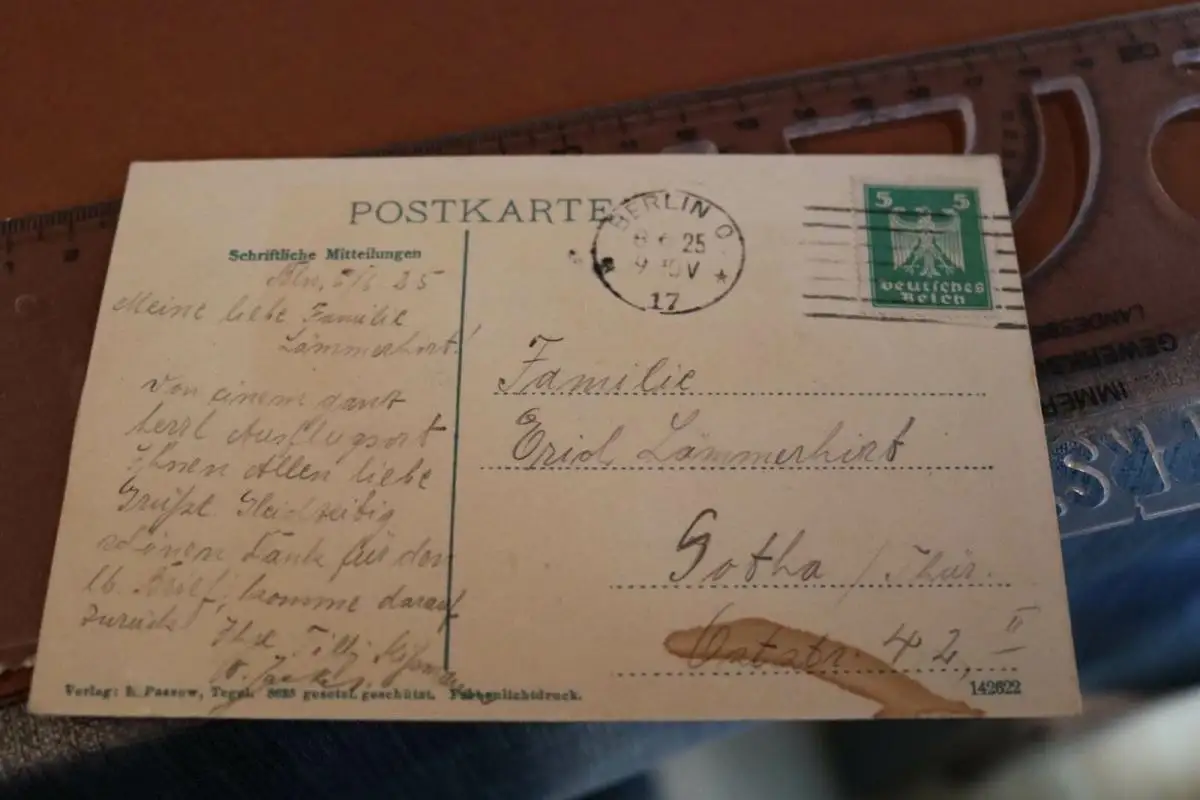 POSTKARTE
Schriftliche Mitteilungen
Bln, 7/6 25
Meine liebe Familie
Lämmerhirt!
Von einem ganz
herrl Ausflugsort
Ihnen Allen liebe
Grüße. Gleichzeitig
schönen Dank für den
lb. Brief, komme darauf
zurück. Ihre Tilli
BERLIN O.
8 6 25
9-10V
17
5 5
Deutsches
Reich
Familie
Erich Lämmerhirt
Gotha / Thür.
Oststr. 42, II
Verlag: R. Passow, Tegel. 8635 gesetzl. geschützt. Farbenlichtdruck.
142622
LANDES
GEWERK
IMMER